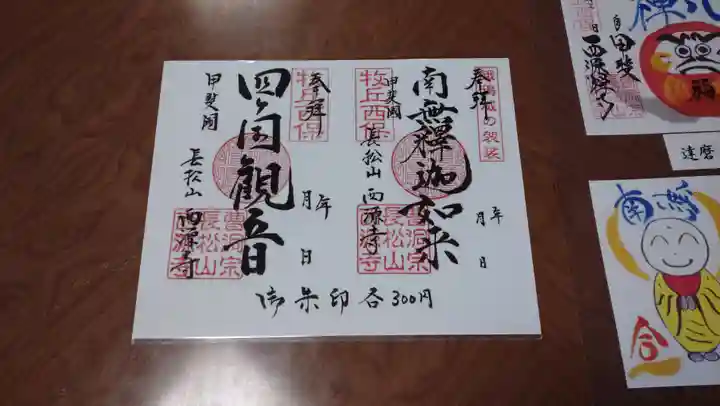 奉拝
南無釋迦如来
年
月 日
甲斐國
長松山 西源寺
牧丘西保
曹洞宗
長松山
西源寺
奉拝
四ヶ国観音
年
月 日
甲斐國
長松山
西源寺
牧丘西保
曹洞宗
長松山
西源寺
御朱印各300円
甲斐
西源寺
達磨
南無
合